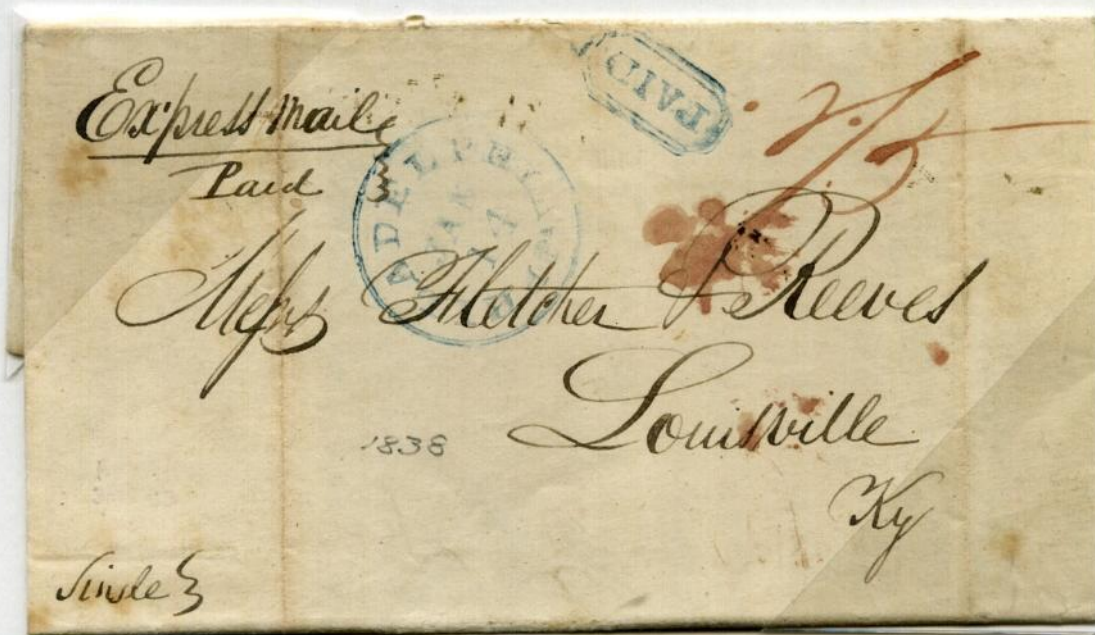 Express Mail
Paid
PAID
PHILADELPHIA
MAR
Messrs Fletcher & Reeves
Louisville
Ky
1838
Single